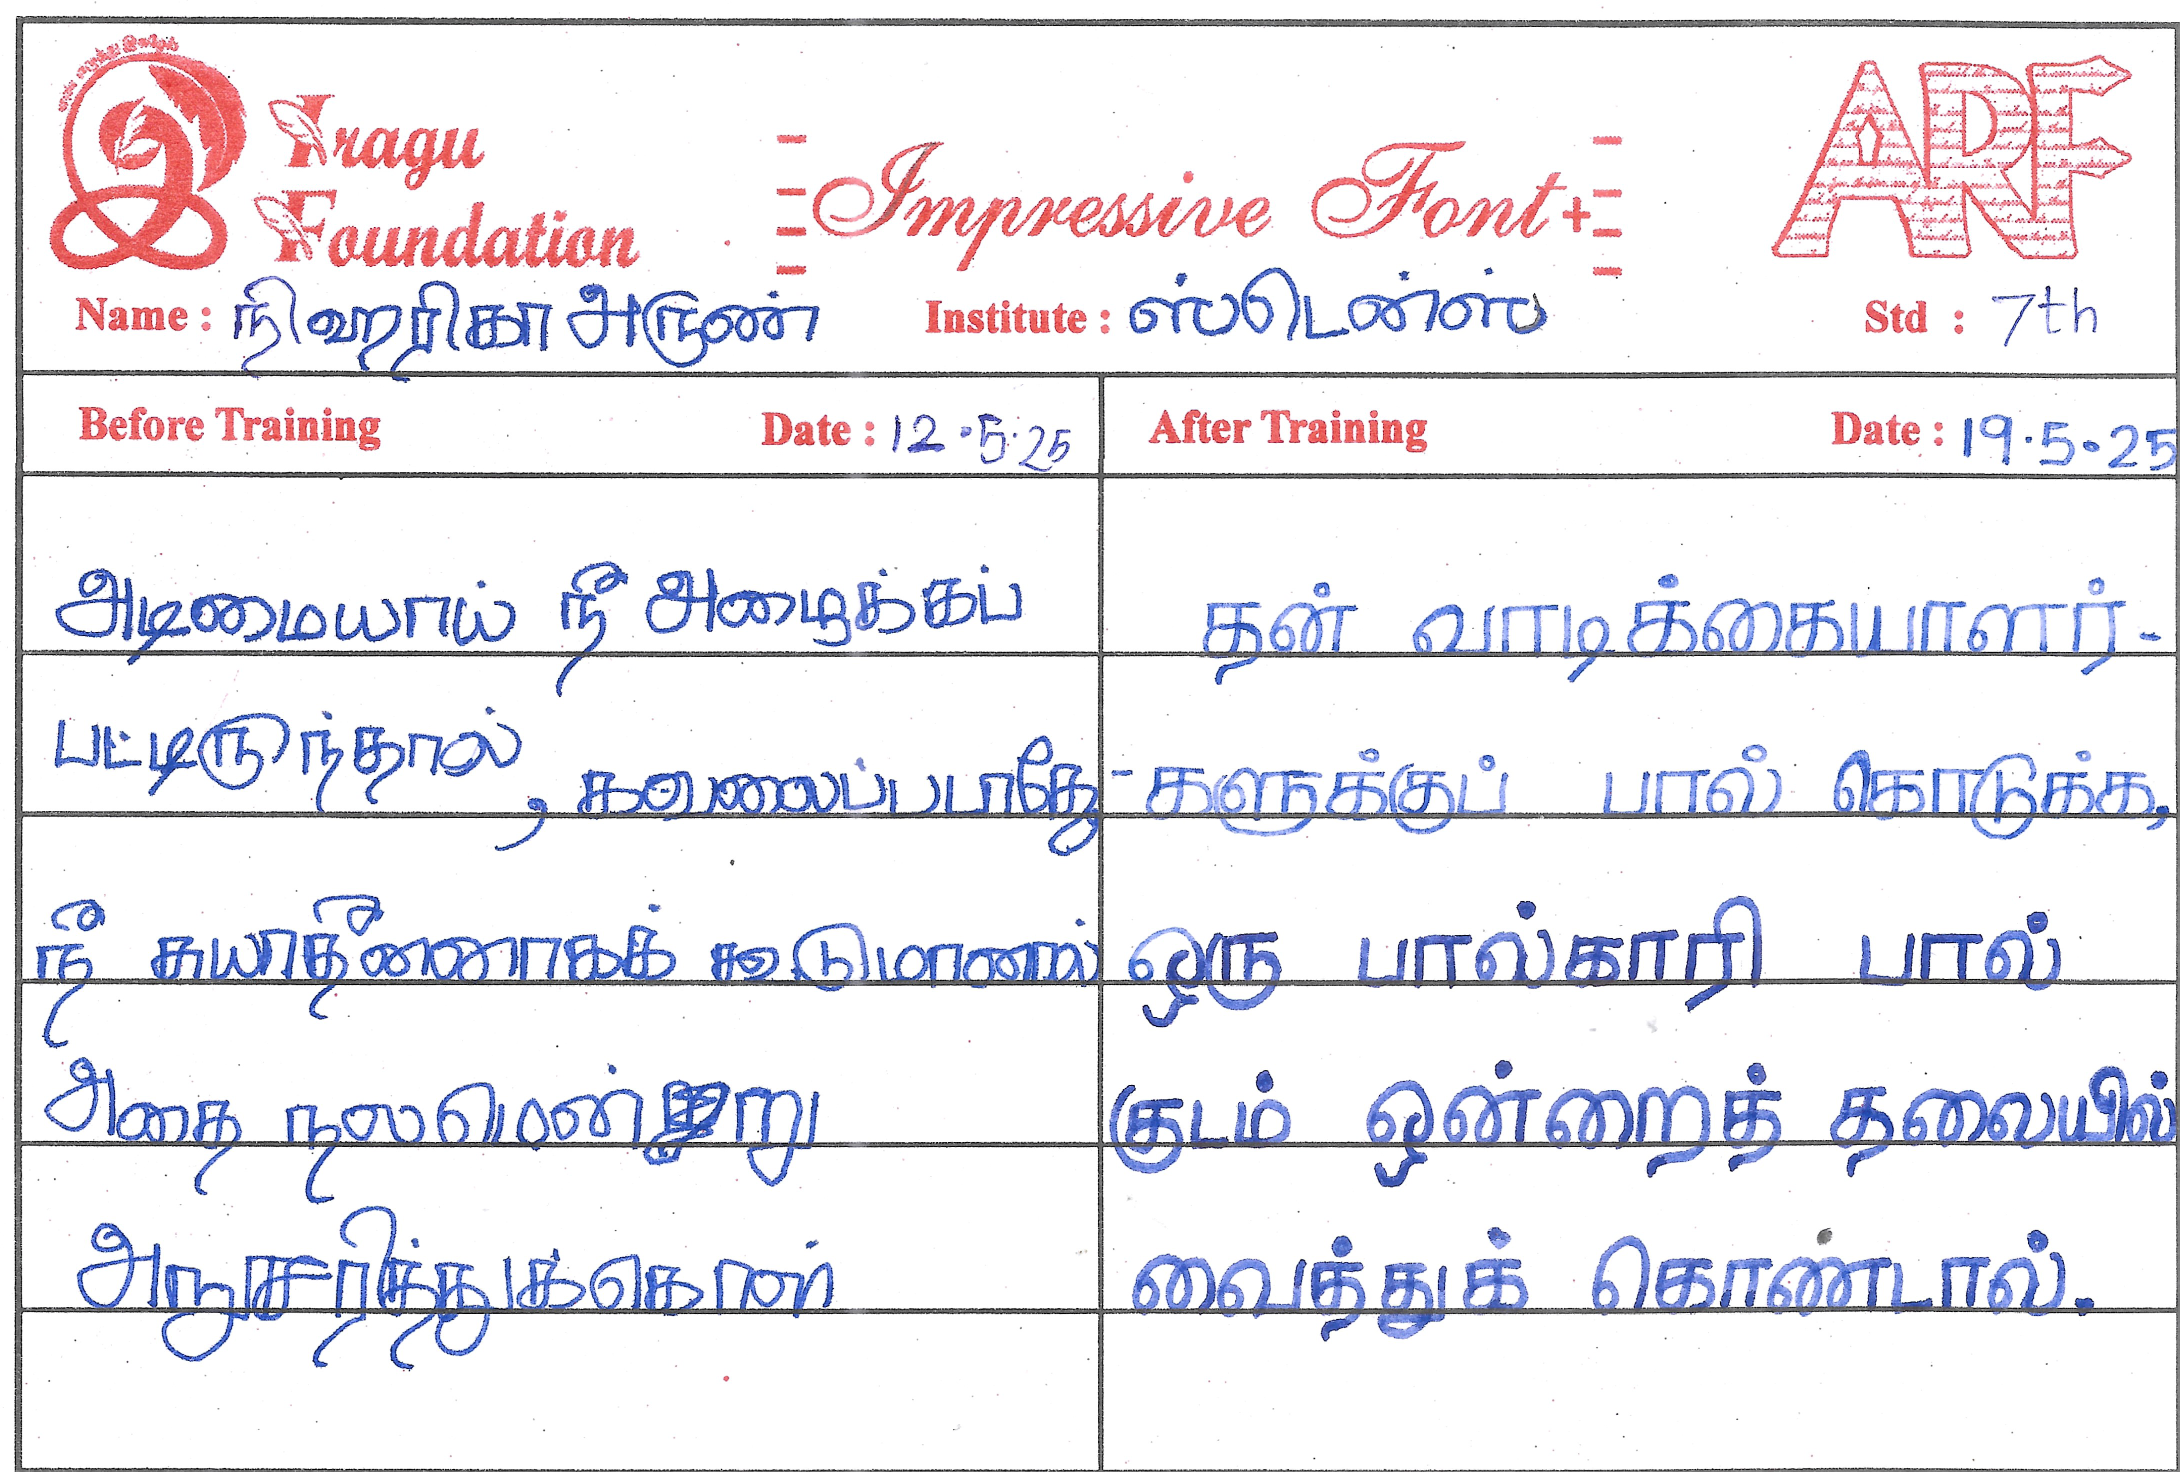 Iragu
Foundation
Impressive Font+
ARF
Name : நிஹாரிகா அருண்
Institute : ஸ்டென்ஸ்
Std : 7th
Before Training
Date : 12.5.25
After Training
Date : 19.5.25
அடிமையாய் நீ அழைக்கப்
பட்டிருந்தால், கவலைப்படாதே
நீ சுயாதீனனாகக் கூடுமானால்
அதை நலமென்று
அநுசரித்துக்கொள்
தன் வாடிக்கையாளர்-
-களுக்குப் பால் கொடுக்க,
ஒரு பால்காரி பால்
குடம் ஒன்றைத் தலையில்
வைத்துக் கொண்டால்.